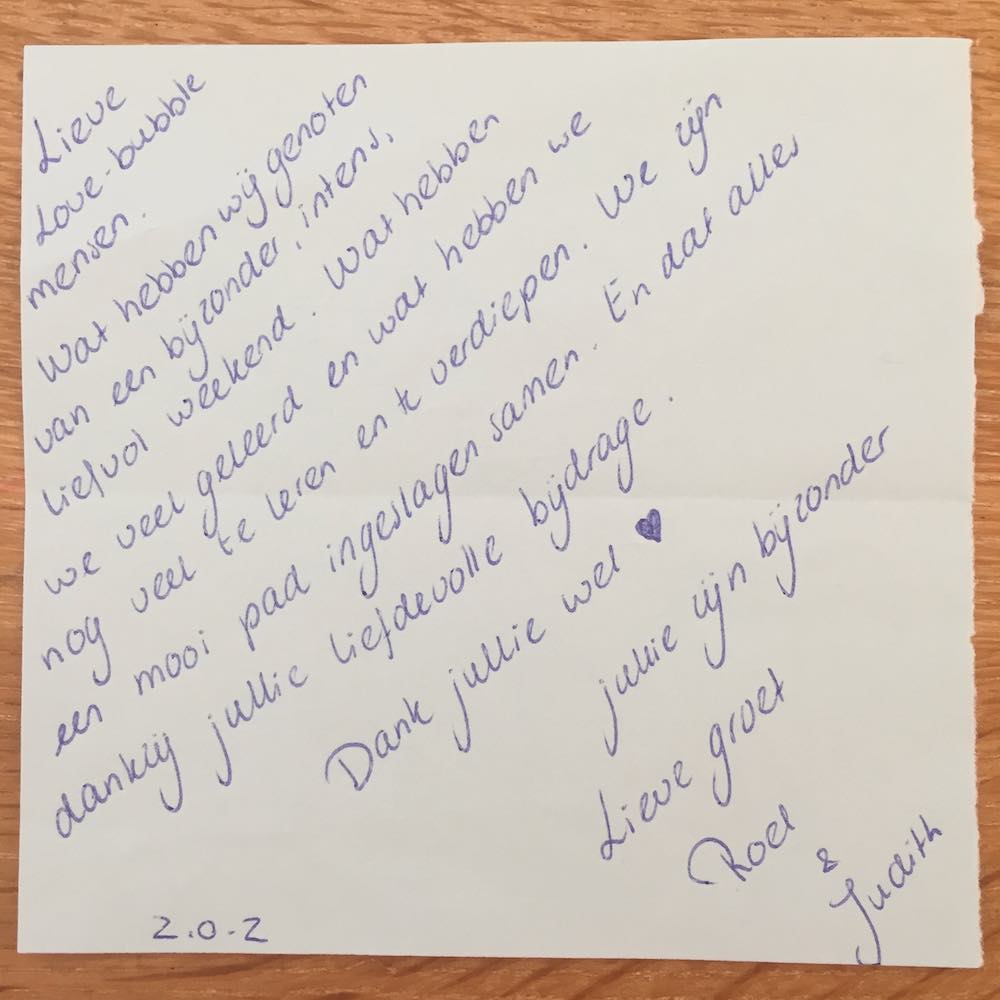 Lieve
Love-bubble
mensen.
Wat hebben wij genoten
van een bijzonder, intens,
liefvol weekend. Wat hebben
we veel geleerd en wat hebben we
nog veel te leren en te verdiepen. We zijn
een mooi pad ingeslagen samen. En dat alles
dankzij jullie liefdevolle bijdrage.
Dank jullie wel ♥
jullie zijn bijzonder
Lieve groet
Roel
&
Judith
2.0.2